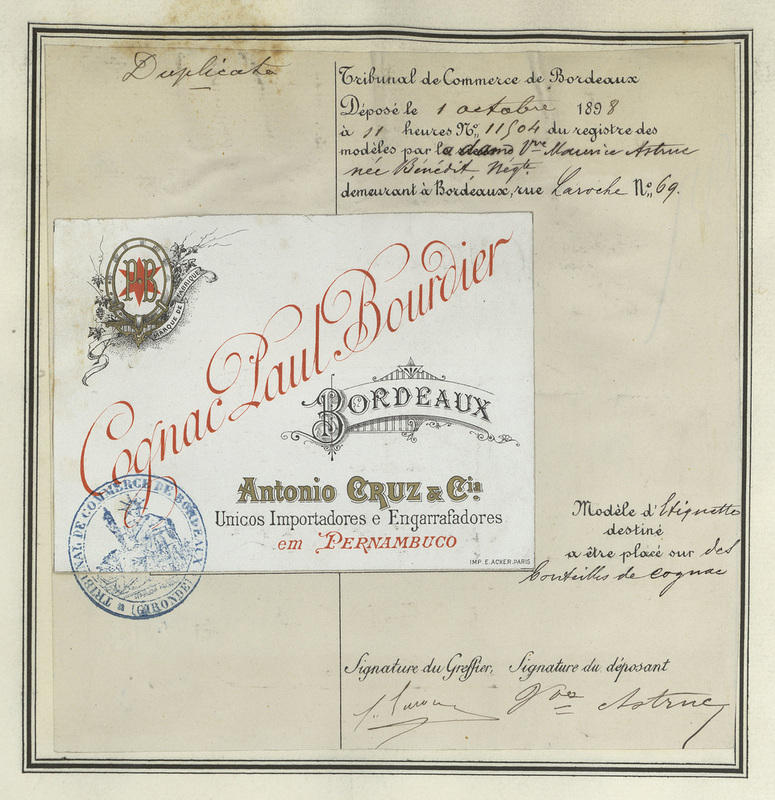 Duplicata
Tribunal de Commerce de Bordeaux
Déposé le 1 octobre 1898
à 11 heures No, 11504 du registre des
modèles par la Vve Maurice Astruc
née Bénédit, Négte.
demeurant à Bordeaux, rue Laroche No, 69.
PB
MARQUE DE FABRIQUE
Cognac Paul Bourdier
BORDEAUX
Antonio CRUZ & Cia.
Unicos Importadores e Engarrafadores
em PERNAMBUCO
IMP. E. ACKER. PARIS
TRIBUNAL DE COMMERCE DE BORDEAUX
(GIRONDE)
Modèle d'Etiquette
destiné
a être placé sur des
bouteilles de cognac
Signature du Greffier, Signature du déposant
Vve Astruc